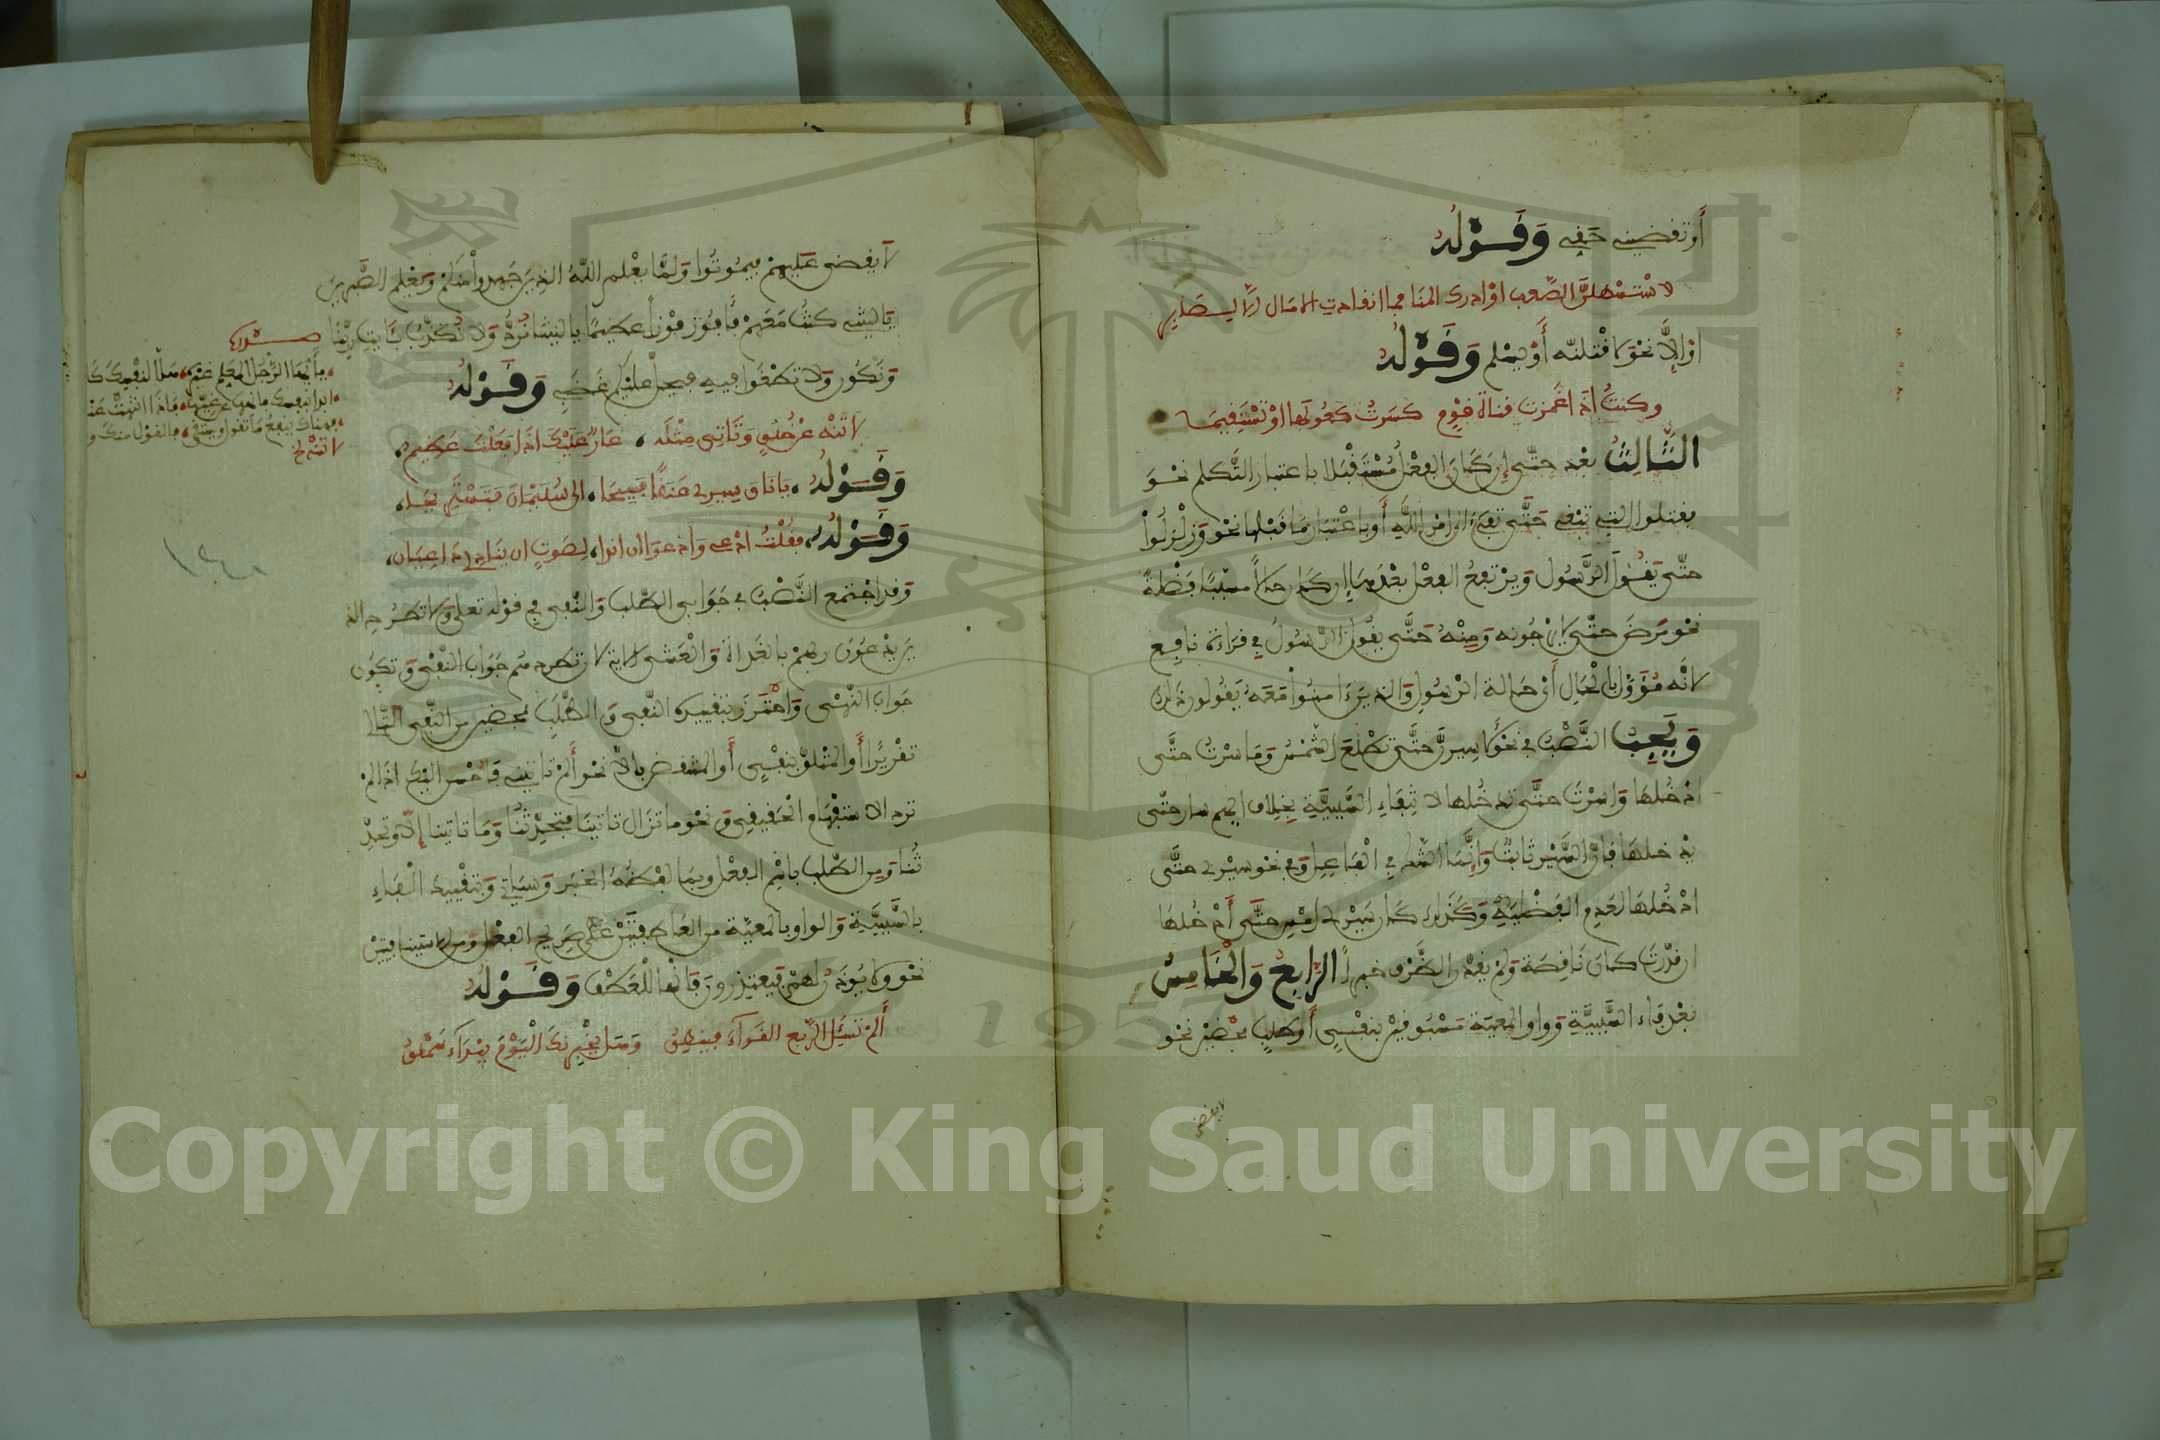 أو تقضيني حقي وقوله
لأستسهلن الصعب أو أدرك المنا فما انقادت الآمال إلا لصابر
أو إلا نحو لأقتلنه أو يسلم وقوله
وكنت إذا غمزت قناة قوم كسرت كعوبها أو تستقيما
الثالث بعد حتى إن كان الفعل مستقبلا باعتبار التكلم نحو
فقتلوا التي تبغي حتى تفيء إلى أمر الله أو باعتبار ما قبلها نحو وزلزلوا
حتى يقول الرسول ويرتفع الفعل بعدها إن كان حالا مسببا فضلة
نحو مرض حتى لا يرجونه ومنه حتى يقول الرسول في قراءة نافع
لأنه مؤول بالحال أي حالة الرسول والذين ءامنوا معه يقولون ذلك
ويجب النصب في نحو لأسيرن حتى تطلع الشمس وما سرت حتى
أدخلها وأسرت حتى تدخلها لانتفاء السببية بخلاف أيهم سار حتى
يدخلها فإن السير ثابت وإنما الشك في الفاعل وفي نحو سيري حتى
أدخلها لعدم الفضلية وكذلك كان سيري أمس حتى أدخلها
إن قدرت كان ناقصة ولم يقدر الظرف خبرا الرابع والخامس
بعد فاء السببية وواو المعية مسبوقين بنفي أو طلب محضين نحو
لا يقضى
لا يقضى عليهم فيموتوا ولما يعلم الله الذين جهدوا منكم ويعلم الصبرين
يا ليتني كنت معهم فأفوز فوزا عظيما يا ليتنا نرد ولا نكذب بئايت ربنا
ونكون ولا تطغوا فيه فيحل عليكم غضبي وقوله
لا تنه عن خلق وتأتي مثله عار عليك إذا فعلت عظيم
وقوله يا ناق سيري عنقا فسيحا إلى سليمان فنستريحا
وقوله فقلت ادعي وأدعو إن أندا لصوت أن ينادي داعيان
وقد اجتمع النصب في جوابي الطلب والنفي في قوله تعلى ولا تطرد الذ
ين يدعون ربهم بالغداة والعشي الآية لأن تطردهم جواب النفي وتكون
جواب النهي واحترز بتقييد النفي والطلب بمحضين من النفي التالي
تقريرا أو المتلو بنفي أو المنتقض بإلا نحو ألم تأتني فأحسن إليك إذا لم
ترد الاستفهام الحقيقي ونحو ما تزال تأتينا فتحدثنا وما تأتينا إلا وتحد
ثنا ومن الطلب باسم الفعل وبما لفظه الخبر وسيأتي وبتقييد الفاء
بالسببية والواو بالمعية من العاطفتين على صريح الفعل ومن الاستينافيتين
نحو ولا يؤذن لهم فيعتذرون فإنها للعطف وقوله
ألم تسئل الربع القواء فينطق وهل يخبرنك اليوم بيداء سملق
يا أيها الرجل المعلم غيره هلا لنفسك كا
ابدا بنفسك فانهها عن غيها فإذا انتهت عنه
فهناك ينفع ما تقول ويشتفى بالقول منك و
لا تنه الخ